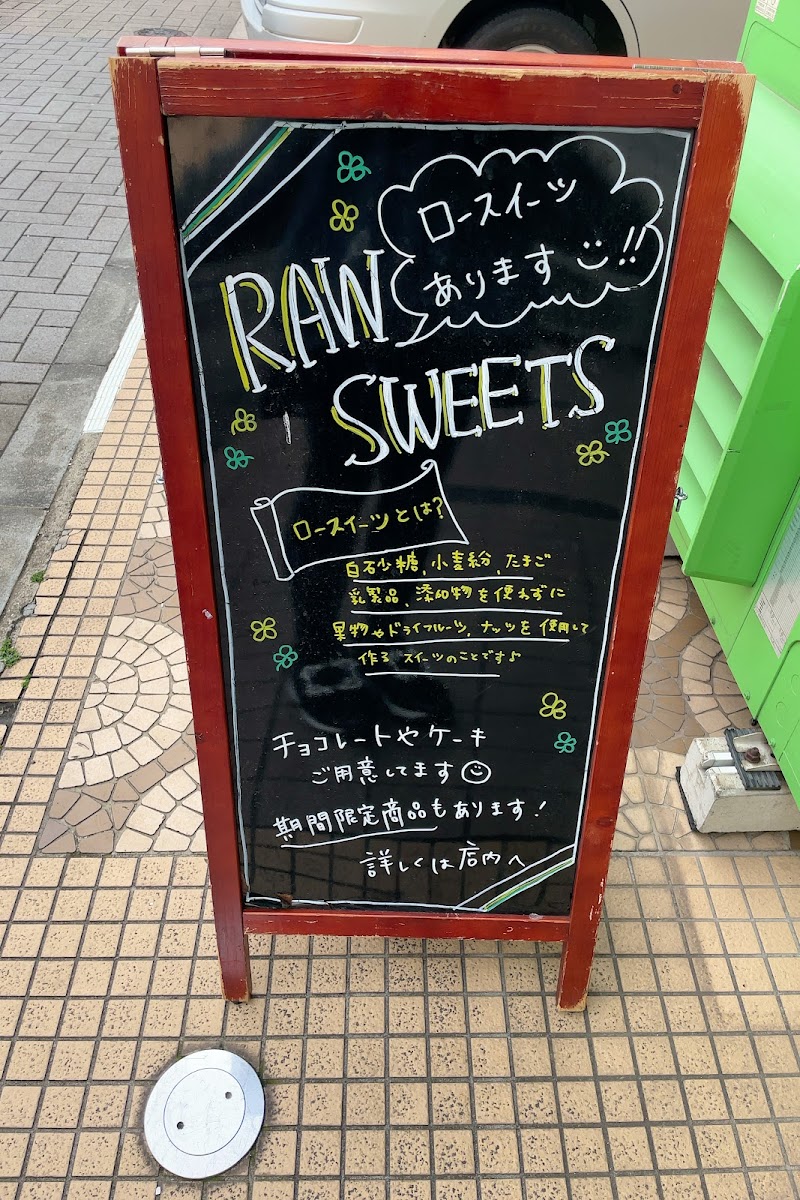 ロースイーツ
あります!!
RAW
SWEETS
ロースイーツとは?
白砂糖、小麦粉、たまご
乳製品、添加物を使わずに
果物やドライフルーツ、ナッツを使用して
作るスイーツのことです♪
チョコレートやケーキ
ご用意してます
期間限定商品もあります!
詳しくは店内へ